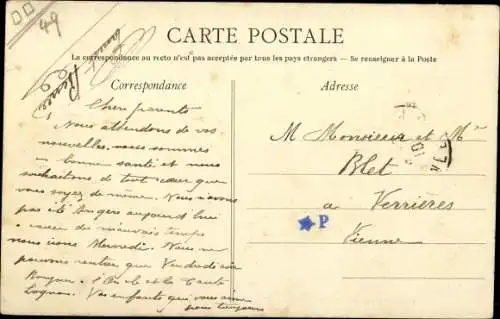 49
CARTE POSTALE
La correspondance au recto n'est pas acceptée par tous les pays étrangers — Se renseigner à la Poste
Correspondance
Adresse
Chers parents
Nous attendons de vos
nouvelles, nous sommes
en bonne santé et nous
souhaitons de tout cœur que
vous soyez de même. Nous n'avons
pas été Angers aujourd hui
cause du mauvais temps
nous irons Mercredi. Nous ne
pouvons rentrer que Vendredi soir
Bonjour à et la Tante
Vos enfants qui vous aime
pour toujours
Renée
M Monsieur et Mme
Blet
a Verrières
Vienne
P